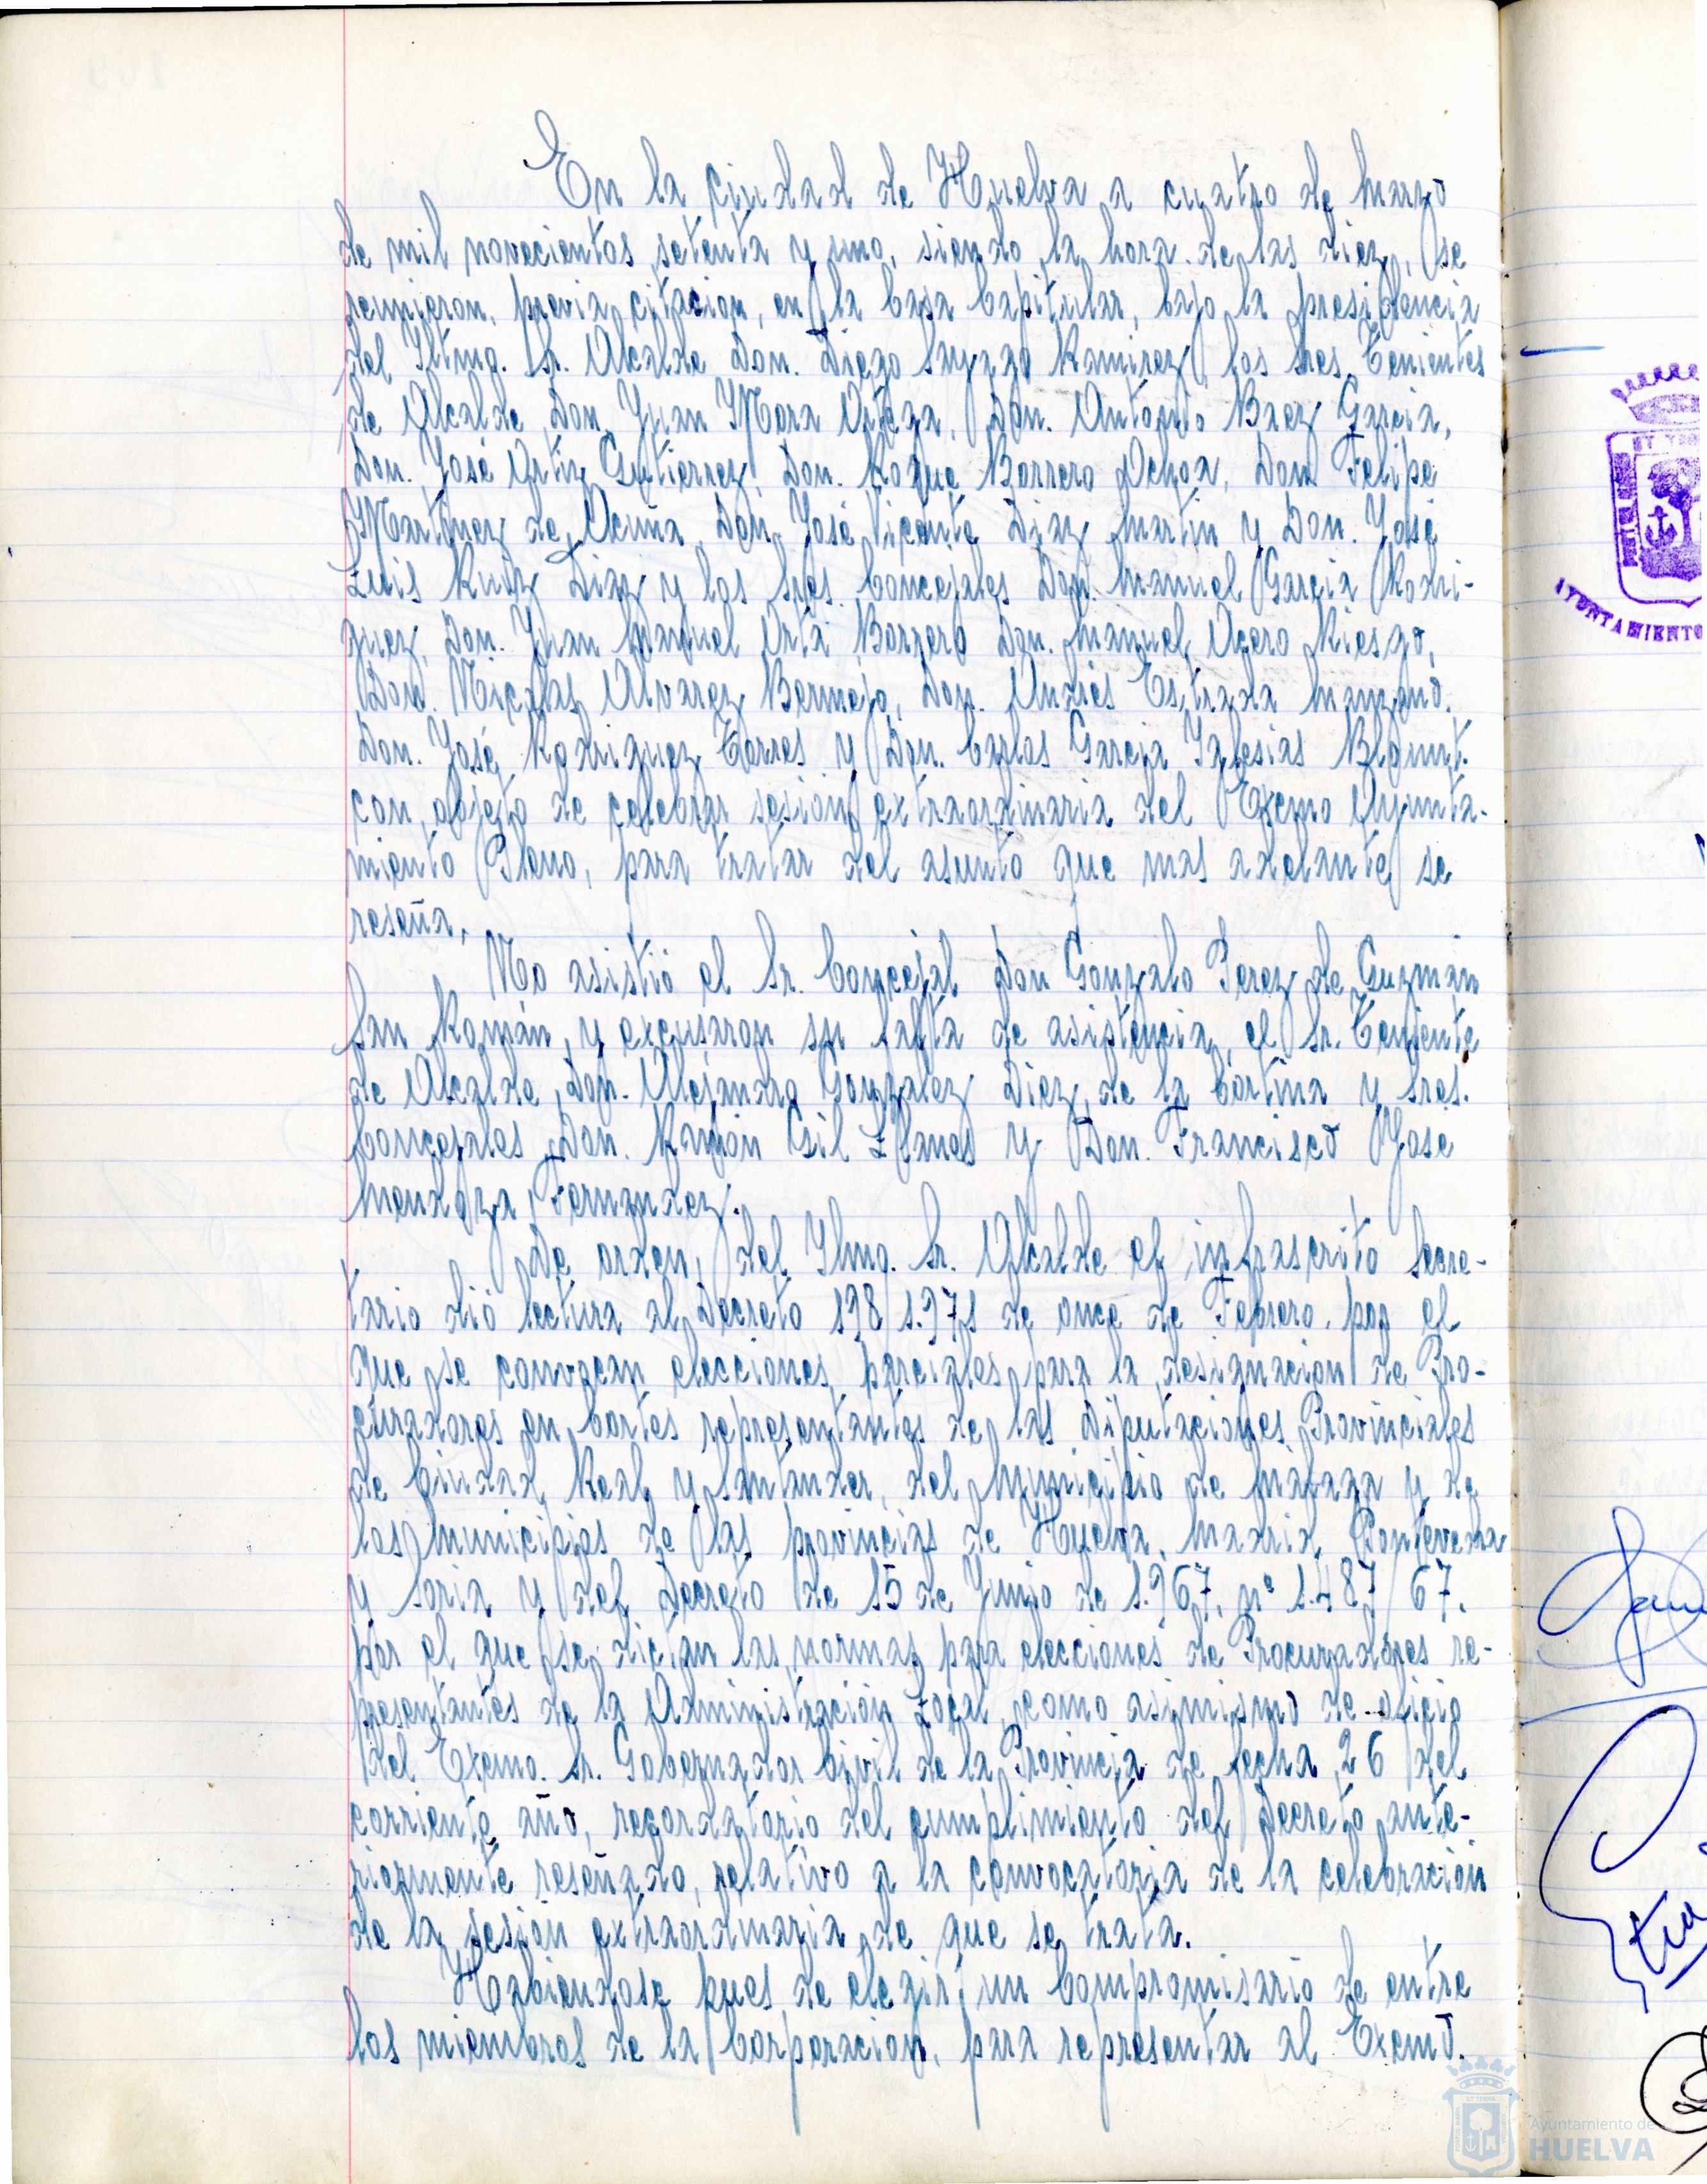 En la ciudad de Huelva a cuatro de Marzo
de mil novecientos setenta y uno, siendo la hora de las diez, se
reunieron, previa citacion, en la Casa Capitular, bajo la presidencia
del Iltmo. Sr. Alcalde Don. Diego Sayago Ramirez, los Sres. Tenientes
de Alcalde Don Juan Mora Ortega, Don. Antonio Baez Garcia,
Don. José Ortiz Gutierrez, Don. Roque Borrero Ochoa, Don Felipe
Martinez de Acuña, Don José Vicente Diaz Martin y Don. José
Luis Ruiz Diaz y los Sres. Concejales Don. Manuel Garcia Rodri-
guez, Don. Juan Manuel Orta Borrero Don. Manuel Acero Riesgo,
Don. Nicolas Alvarez Bermejo, Don. Andrés Estrada Manzano.
Don. José Rodriguez Torres y Don. Carlos Garcia Iglesias Blount.
con objeto de celebrar sesión extraordinaria del Excmo Ayunta-
miento Pleno, para tratar del asunto que mas adelante se
reseña.
No asistió el Sr. Concejal Don Gonzalo Perez de Guzmán
San Román, y excusaron su falta de asistencia, el Sr. Teniente
de Alcalde, Don. Alejandro Gonzalez Diez de la Cortina y Sres.
Concejales Don. Ramón Gil Llanes y Don. Francisco José
Mendoza Fernandez.
De orden, del Ilmo. Sr. Alcalde el infrascrito Secre-
tario dió lectura al Decreto 198/1.971 de once de Febrero, por el
que se convocan elecciones parciales para la designacion de Pro-
curadores en Cortes representantes de las Diputaciones Provinciales
de Ciudad Real y Santander, del Municipio de Malaga y de
los Municipios de las provincias de Huelva, Madrid, Pontevedra
y Soria y del Decreto de 15 de Junio de 1.967, nº 1.487/67.
por el que se dictan las normas para elecciones de Procuradores re-
presentantes de la Administración Local, como asimismo de oficio
del Excmo. Sr. Gobernador Civil de la Provincia de fecha 26 del
corriente año, recordatorio del cumplimiento del Decreto ante-
riormente reseñado, relativo a la convocatoria de la celebración
de la sesión extraordinaria de que se trata.
Habiendose pues de elegir, un Compromisario de entre
los miembros de la Corporacion, para representar al Excmo.
AYUNTAMIENTO
Ayuntamiento de
HUELVA